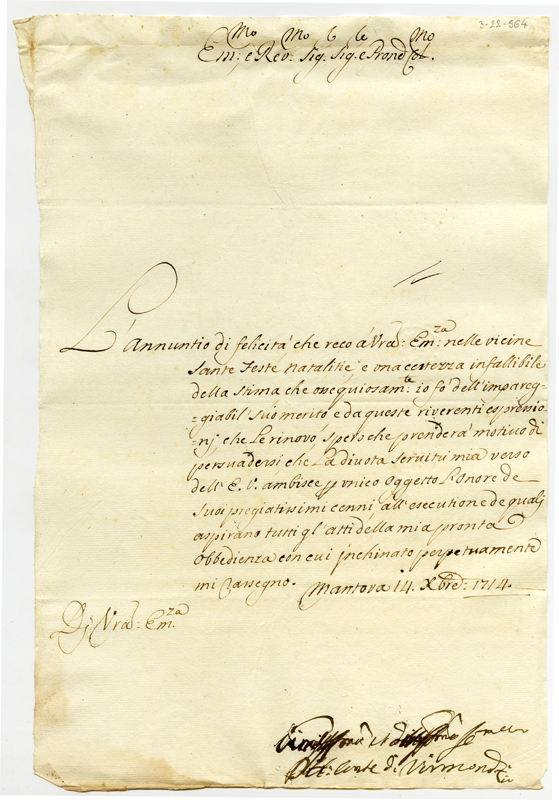 3-22-564
Em:mo e Rev:mo Sig:r Sig:re Prond Col:mo
L'annuntio di felicità che reco à Vra: Em:za nelle vicine
Sante Feste Natalitie è una certezza infallibile
della stima che ossequiosam:te io fò dell'impareg-
-giabil suo merito e da queste riverenti espressio-
-nj, che Le rinovo, spero che prenderà motivo di
persuadersi, che La divota servitù mia verso
dell'E.V. ambisce p unico oggetto L'onore de
suoi pregiatissimi cenni, all'esecutione de quali
aspirano tutti gl'atti della mia pronta
Obbedienza con cui jnchinato perpetuamente
mi rassegno. Mantova 14. Xbre: 1714.
Dj Vra: Em:za
et
Conte di Virmond